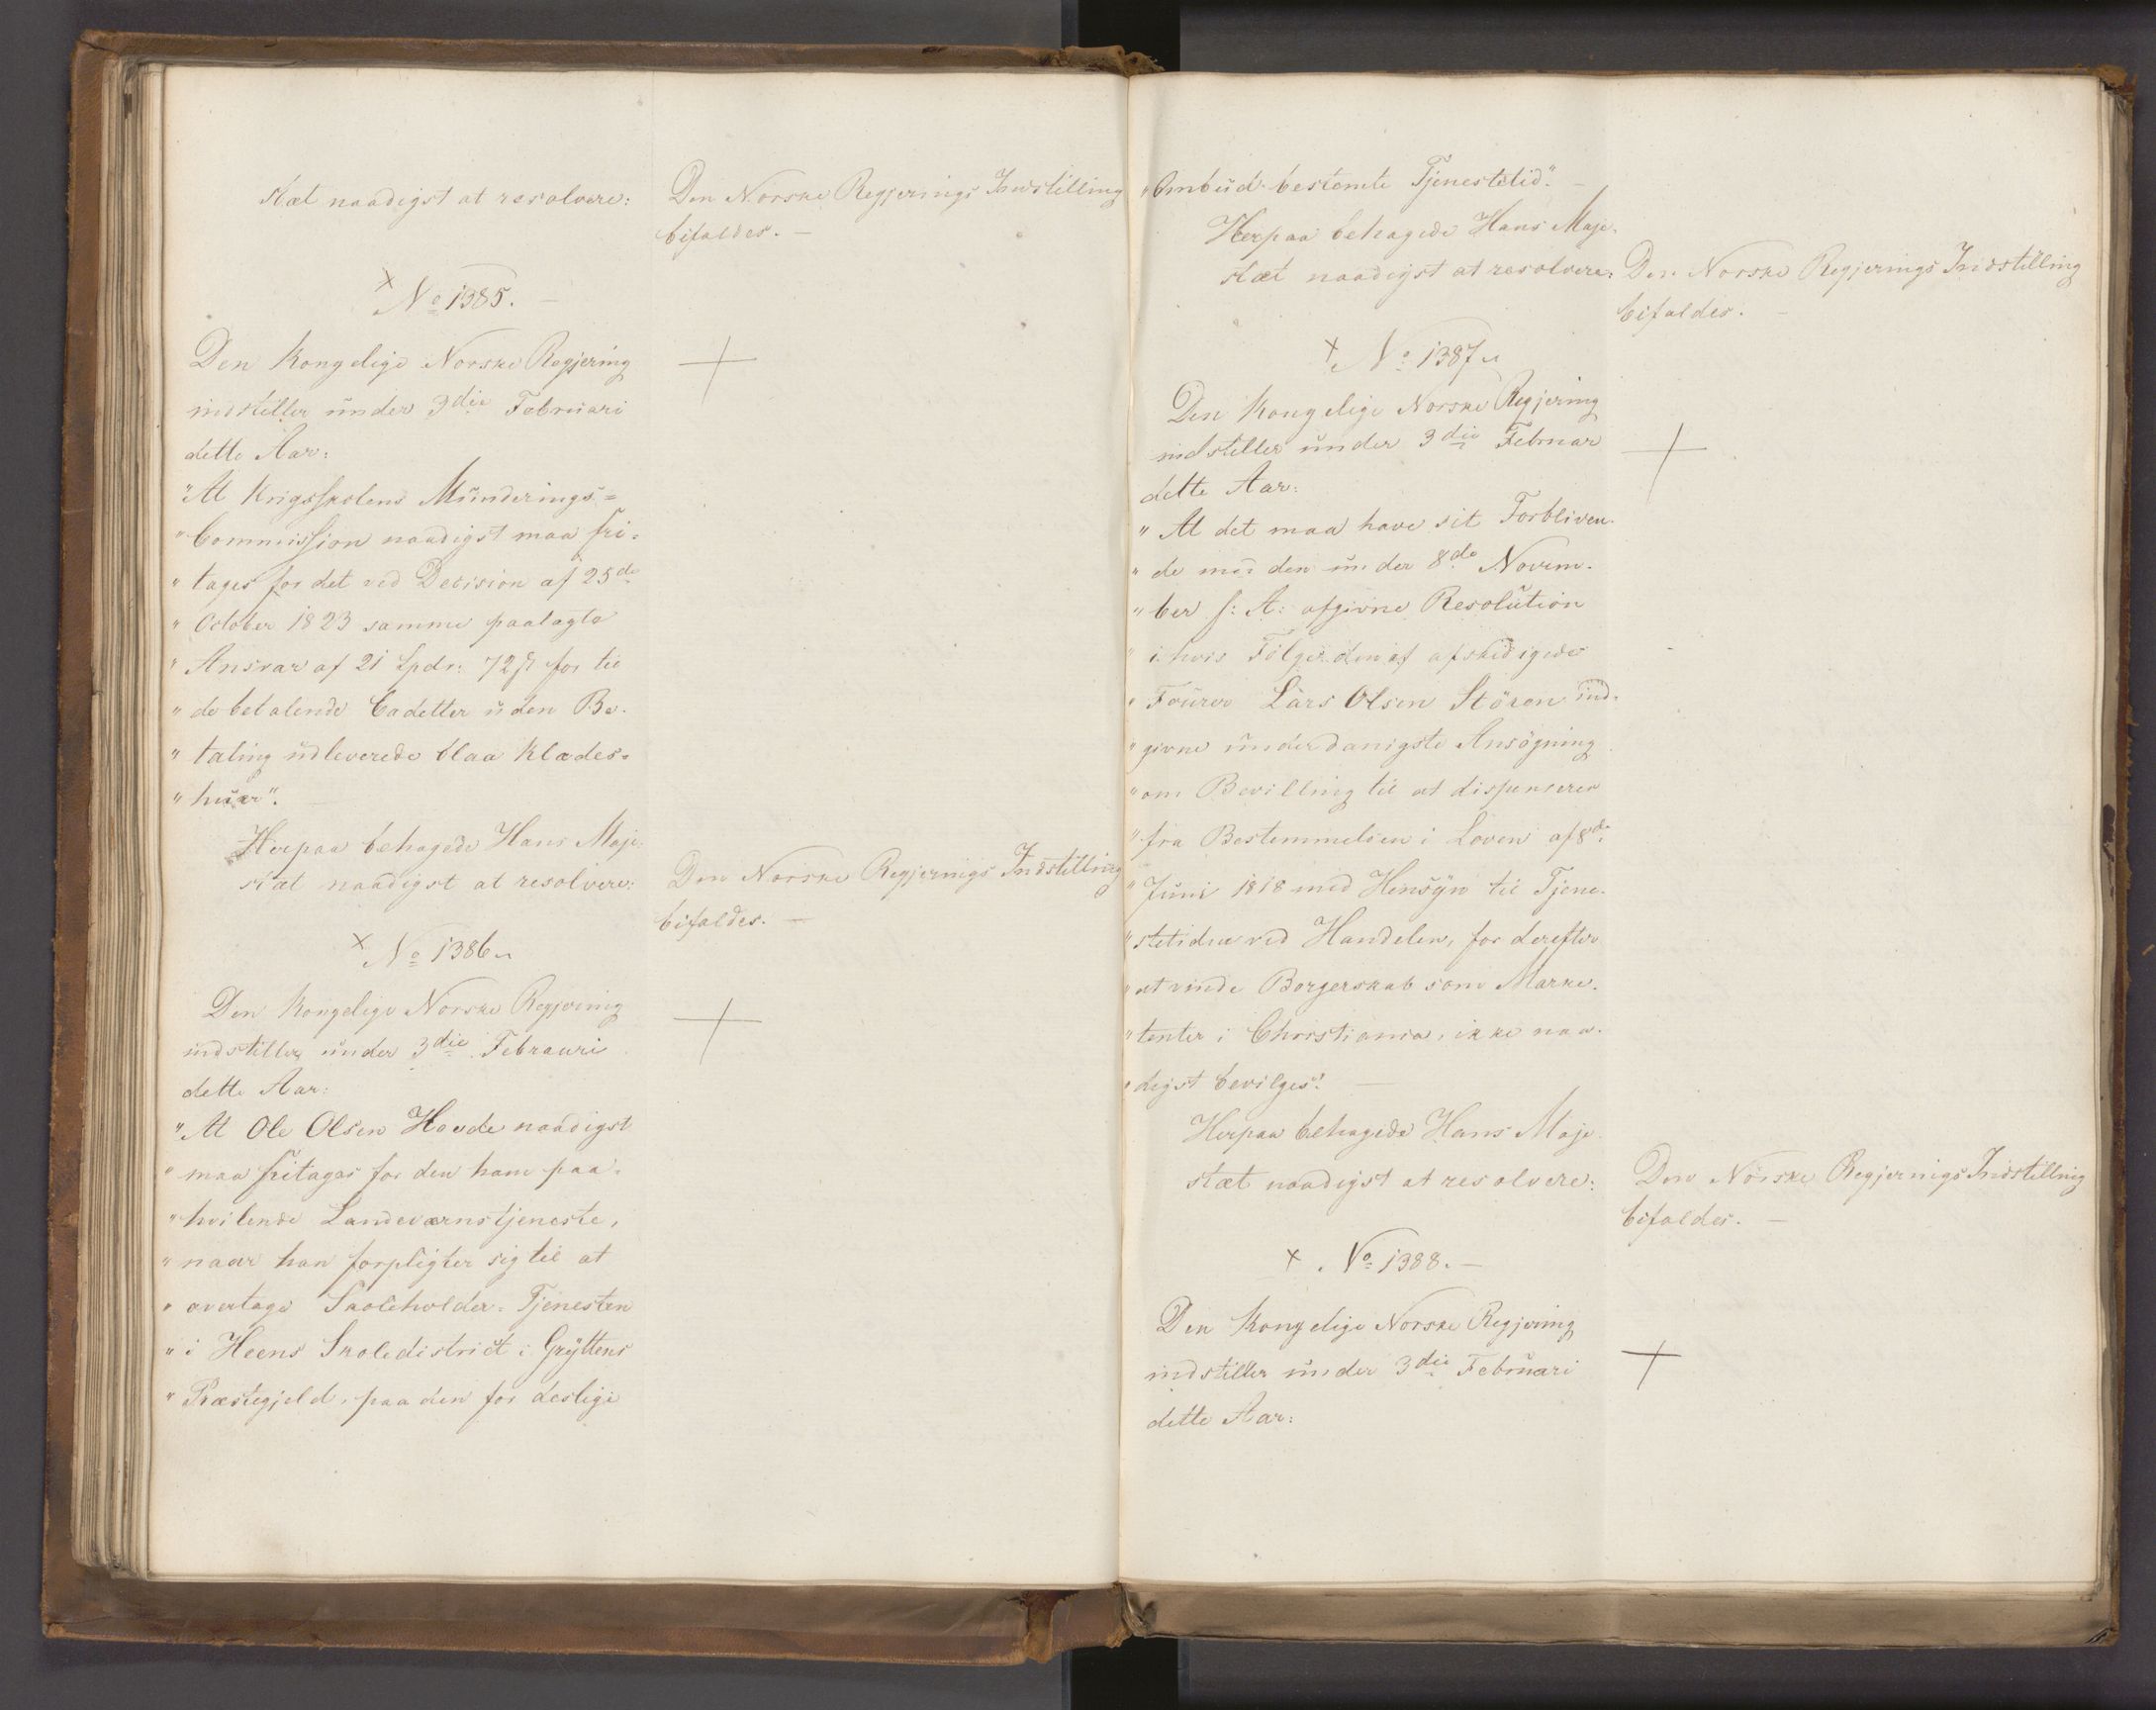 stæt naadigst at resolvere:
Den Norske Regjerings Indstilling
bifaldes. —
× No 1385. —
Den Kongelige Norske Regjering
indstiller under 3die Februari
dette Aar:
"At Krigsskolens Munderings=
"Commission naadigst maa fri-
"tages for det ved Decision af 25de
"October 1823 samme paalagte
"Ansvar af 21 Spdr: 72 ß for til
"de betalende Cadetter uden Be-
"taling udleverede blaa Klædes-
"huer". —
Herpaa behagede Hans Maje-
stæt naadigst at resolvere:
Den Norske Regjerings Indstilling
bifaldes. —
× No 1386.
Den Kongelige Norske Regjering
indstiller under 3die Februari
dette Aar:
"At Ole Olsen Hovde naadigst
"maa fritages for den ham paa-
"hvilende Landeværnstjeneste,
"naar han forpligter sig til at
"overtage Skoleholder-Tjenesten
"i Heens Skoledistrict i Gryttens
"Præstegjeld, paa den for deslige
"Ombud bestemte Tjenestetid". —
Herpaa behagede Hans Maje-
stæt naadigst at resolvere:
Den Norske Regjerings Indstilling
bifaldes. —
× No 1387.
Den Kongelige Norske Regjering
indstiller under 3die Februar
dette Aar:
"At det maa have sit Forbliven-
"de med den under 8de Novem-
"ber f: A: afgivne Resolution
"i hvis Følge den af afskedigede
"Fourer Lars Olsen Stören ind-
"givne underdanigste Ansøgning
"om Bevilling til at dispenseres
"fra Bestemmelsen i Loven af 8de
"Juni 1818 med Hensyn til Tjene-
"stetiden ved Handelen, for derefter
"at vinde Borgerskab som Marke-
"tenter i Christiania, ikke naa-
"digst bevilges". —
Herpaa behagede Hans Maje-
stæt naadigst at resolvere:
Den Norske Regjerings Indstilling
bifaldes. —
× No 1388. —
Den Kongelige Norske Regjering
indstiller under 3die Februari
dette Aar: